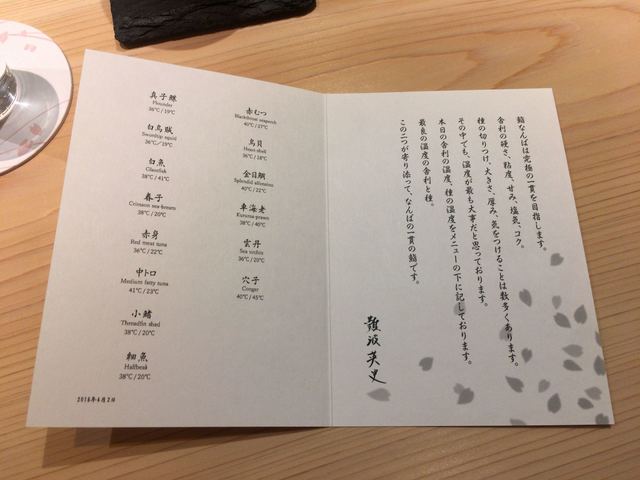 真子鰈
Flounder
36℃ / 19℃
白烏賊
Swordtip squid
36℃ / 29℃
白魚
Glassfish
38℃ / 41℃
春子
Crimson sea-bream
38℃ / 20℃
赤身
Red meat tuna
36℃ / 22℃
中トロ
Medium fatty tuna
41℃ / 23℃
小鰭
Threadfin shad
38℃ / 20℃
細魚
Halfbeak
38℃ / 20℃
赤むつ
Blackthroat seaperch
40℃ / 27℃
鳥貝
Heart-shell
36℃ / 18℃
金目鯛
Splendid alfonsino
40℃ / 22℃
車海老
Kuruma-prawn
38℃ / 40℃
雲丹
Sea urchin
36℃ / 20℃
穴子
Conger
40℃ / 45℃
2016年4月2日
鮨なんばは究極の一貫を目指します。
舎利の硬さ、粘度、甘み、塩気、コク。
種の切りつけ、大きさ、厚み、気をつけることは数多くあります。
その中でも、温度が最も大事だと思っております。
本日の舎利の温度、種の温度をメニューの下に記しております。
最良の温度の舎利と種。
この二つが寄り添って、なんばの一貫の鮨です。
難波英史